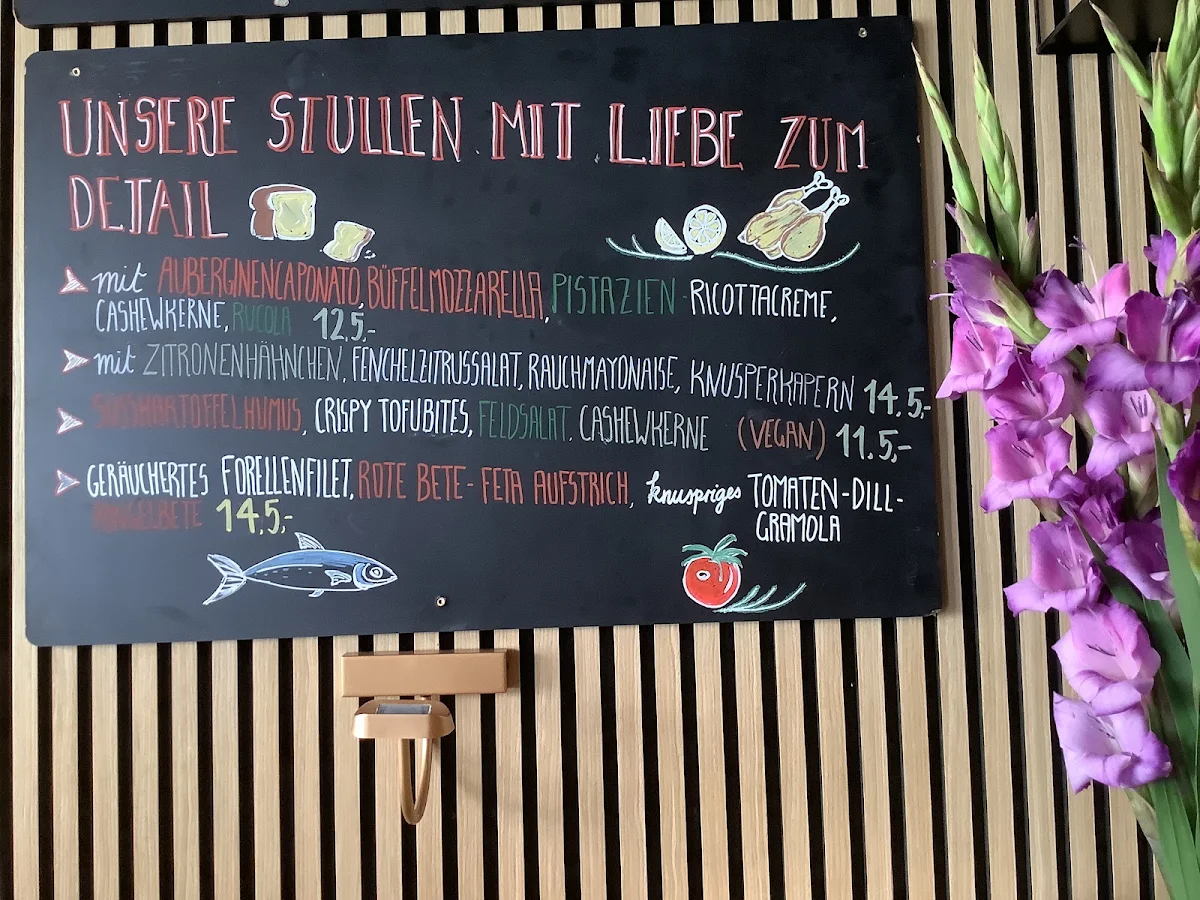 UNSERE STULLEN MIT LIEBE ZUM
DETAIL
mit AUBERGINENCAPONATO, BÜFFELMOZZARELLA, PISTAZIEN-RICOTTACREME,
CASHEWKERNE, RUCOLA 12,5,-
mit ZITRONENHÄHNCHEN, FENCHELZITRUSSALAT, RAUCHMAYONAISE, KNUSPERKAPERN 14,5,-
SÜSSKARTOFFELHUMUS, CRISPY TOFUBITES, FELDSALAT, CASHEWKERNE (VEGAN) 11.5,-
GERÄUCHERTES FORELLENFILET, ROTE BETE-FETA AUFSTRICH, knuspriges TOMATEN-DILL-
GRAMOLA
RINGELBETE 14,5,-